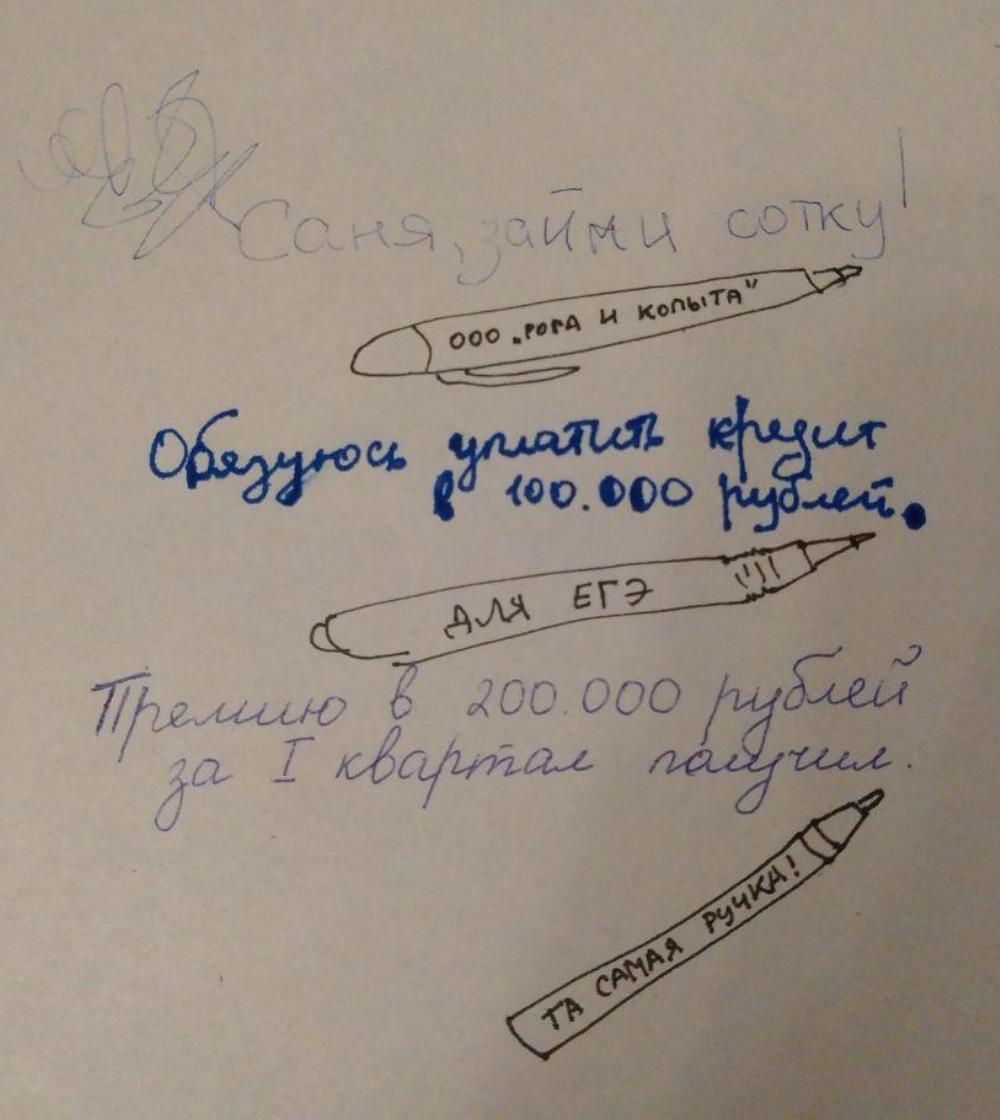 Саня, займи сотку!
ООО „РОГА И КОПЫТА"
Обязуюсь уплатить кредит
в 100.000 рублей.
ДЛЯ ЕГЭ
Премию в 200.000 рублей
за I квартал получил.
ТА САМАЯ РУЧКА!